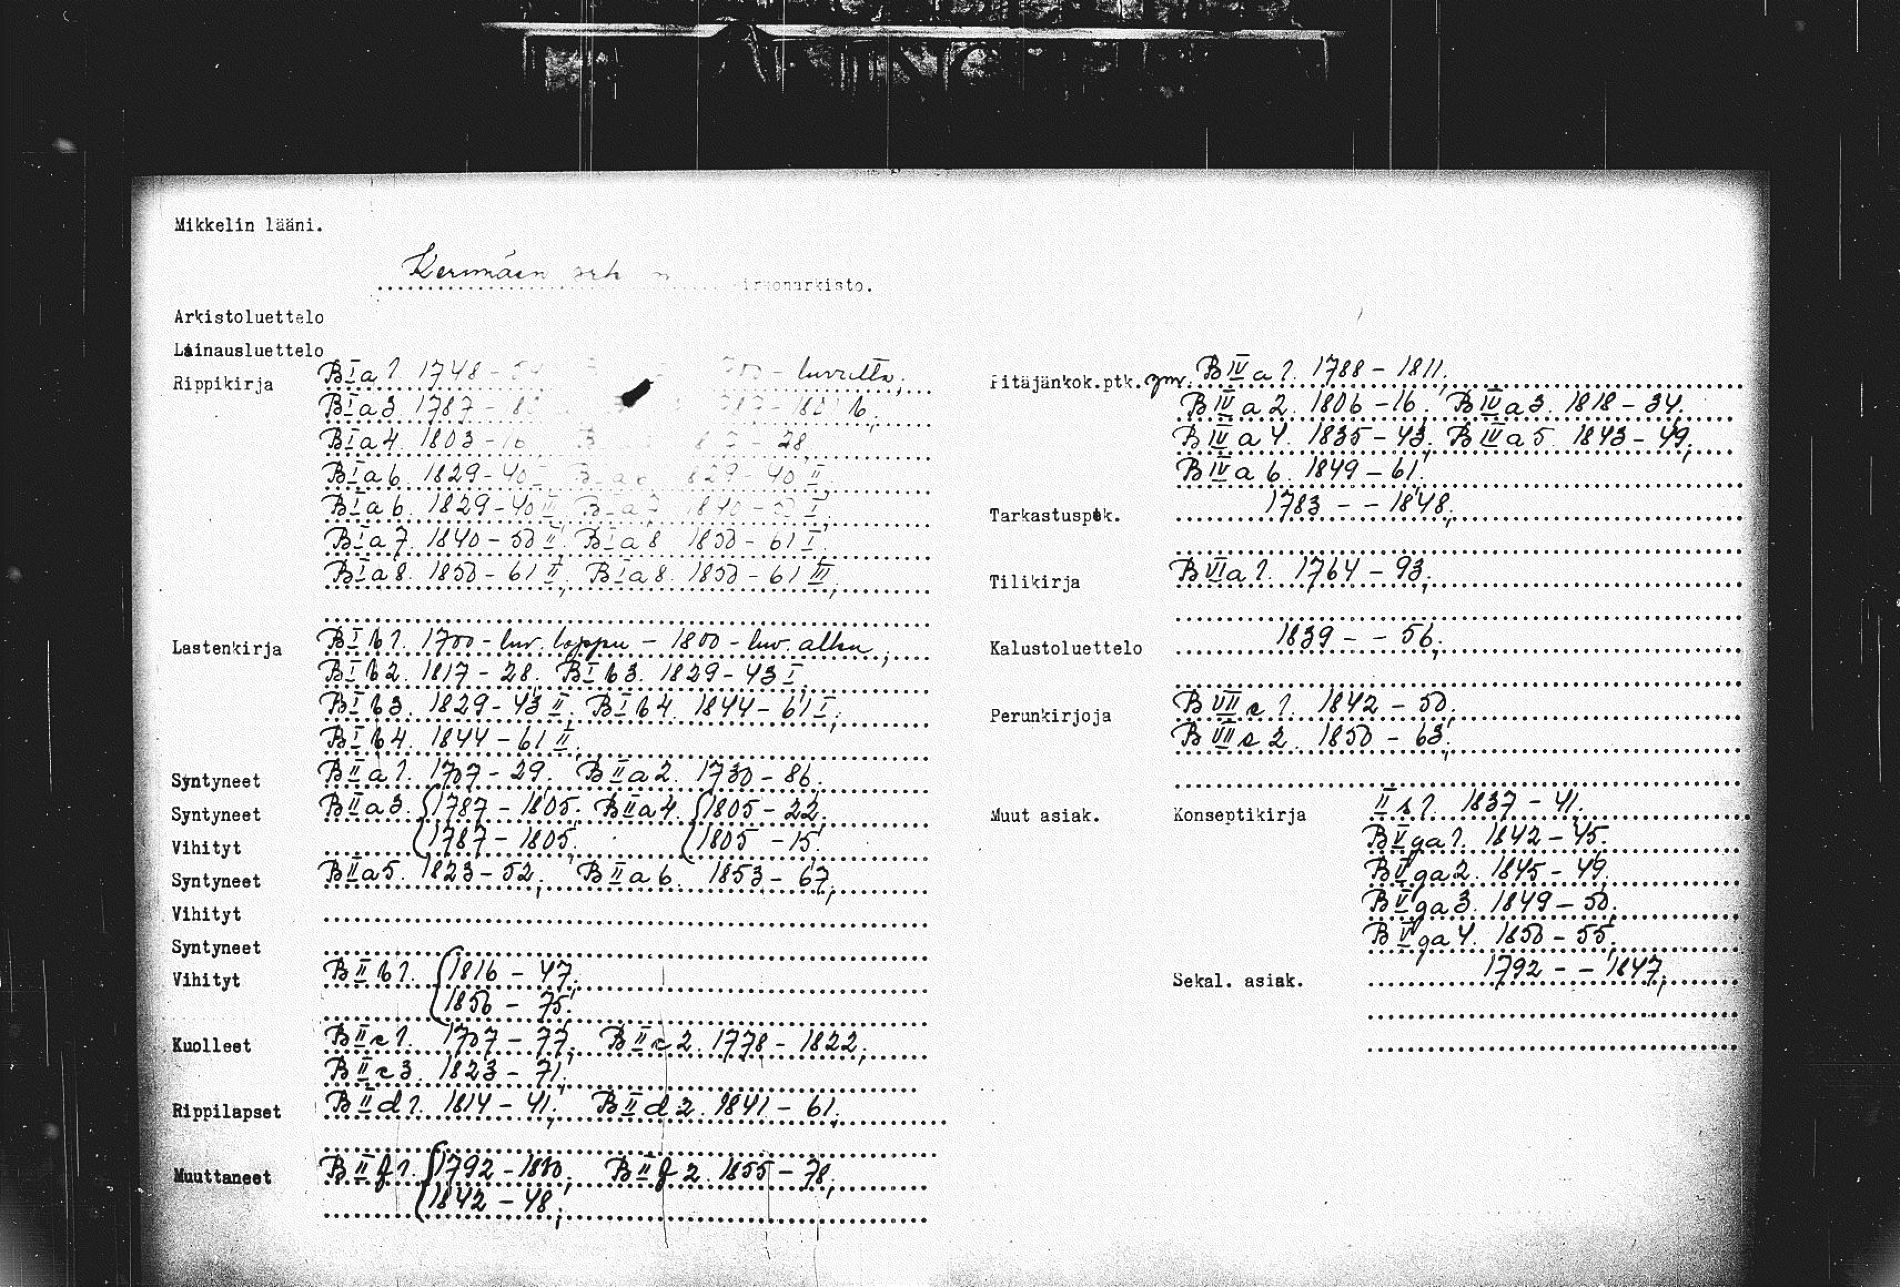 Mikkelin lääni.
Kerimäen srk n kirkonarkisto.
Arkistoluettelo
Lainausluettelo
Rippikirja BIa1. 1748 - 54 - luvulta;
BIa3. 1787 - 1801 b;
BIa4. 1803 - 16 - 28,
BIa6. 1829 - 40 I B I a 6 1829 - 40 II.
BIa6. 1829 - 40 III BIa7. 1840 - 50 I.
BIa7. 1840 - 50 II. BIa8 1850 - 61 I,
BIa8. 1850 - 61 II, BIa8. 1850 - 61 III,
Lastenkirja BIb1. 1700 - luv. loppu - 1800 - luv. alku;
BIb2. 1817 - 28. BIb3. 1829 - 43 I,
BIb3. 1829 - 43 II. BIb4. 1844 - 61 I;
BIb4. 1844 - 61 II.
Syntyneet BIIa1. 1707 - 29. BIIa2. 1730 - 86.
Syntyneet BIIa3. 1787 - 1805. BIIa4. 1805 - 22,
Vihityt 1787 - 1805. 1805 - 15.
Syntyneet BIIa5. 1823 - 52, BIIa6. 1853 - 67,
Vihityt
Syntyneet
Vihityt BIIb1. 1816 - 47.
1856 - 75.
Kuolleet BIIc1. 1707 - 77, BIIc2. 1778 - 1822,
BIIc3. 1823 - 71.
Rippilapset BIId1. 1814 - 41, BIId2. 1841 - 61.
Muuttaneet BIIf1. 1792 - 1830, BIIf2. 1855 - 78,
1842 - 48;
Pitäjänkok.ptk. ym. BIVa1. 1788 - 1811.
BIVa2. 1806 - 16. BIVa3. 1818 - 34.
BIVa4. 1835 - 43. BIVa5. 1843 - 49,
BIVa6. 1849 - 61.
Tarkastuspök. 1783 - - 1848,
Tilikirja BVIa1. 1764 - 93,
Kalustoluettelo 1839 - - 56,
Perunkirjoja BVIIc1. 1842 - 50.
BVIIc2. 1850 - 63,
Muut asiak. Konseptikirja IIs1. 1837 - 41.
BVga1. 1842 - 45.
BVga2. 1845 - 49.
BVga3. 1849 - 50.
BVga4. 1850 - 55.
Sekal. asiak. 1792 - - 1847,